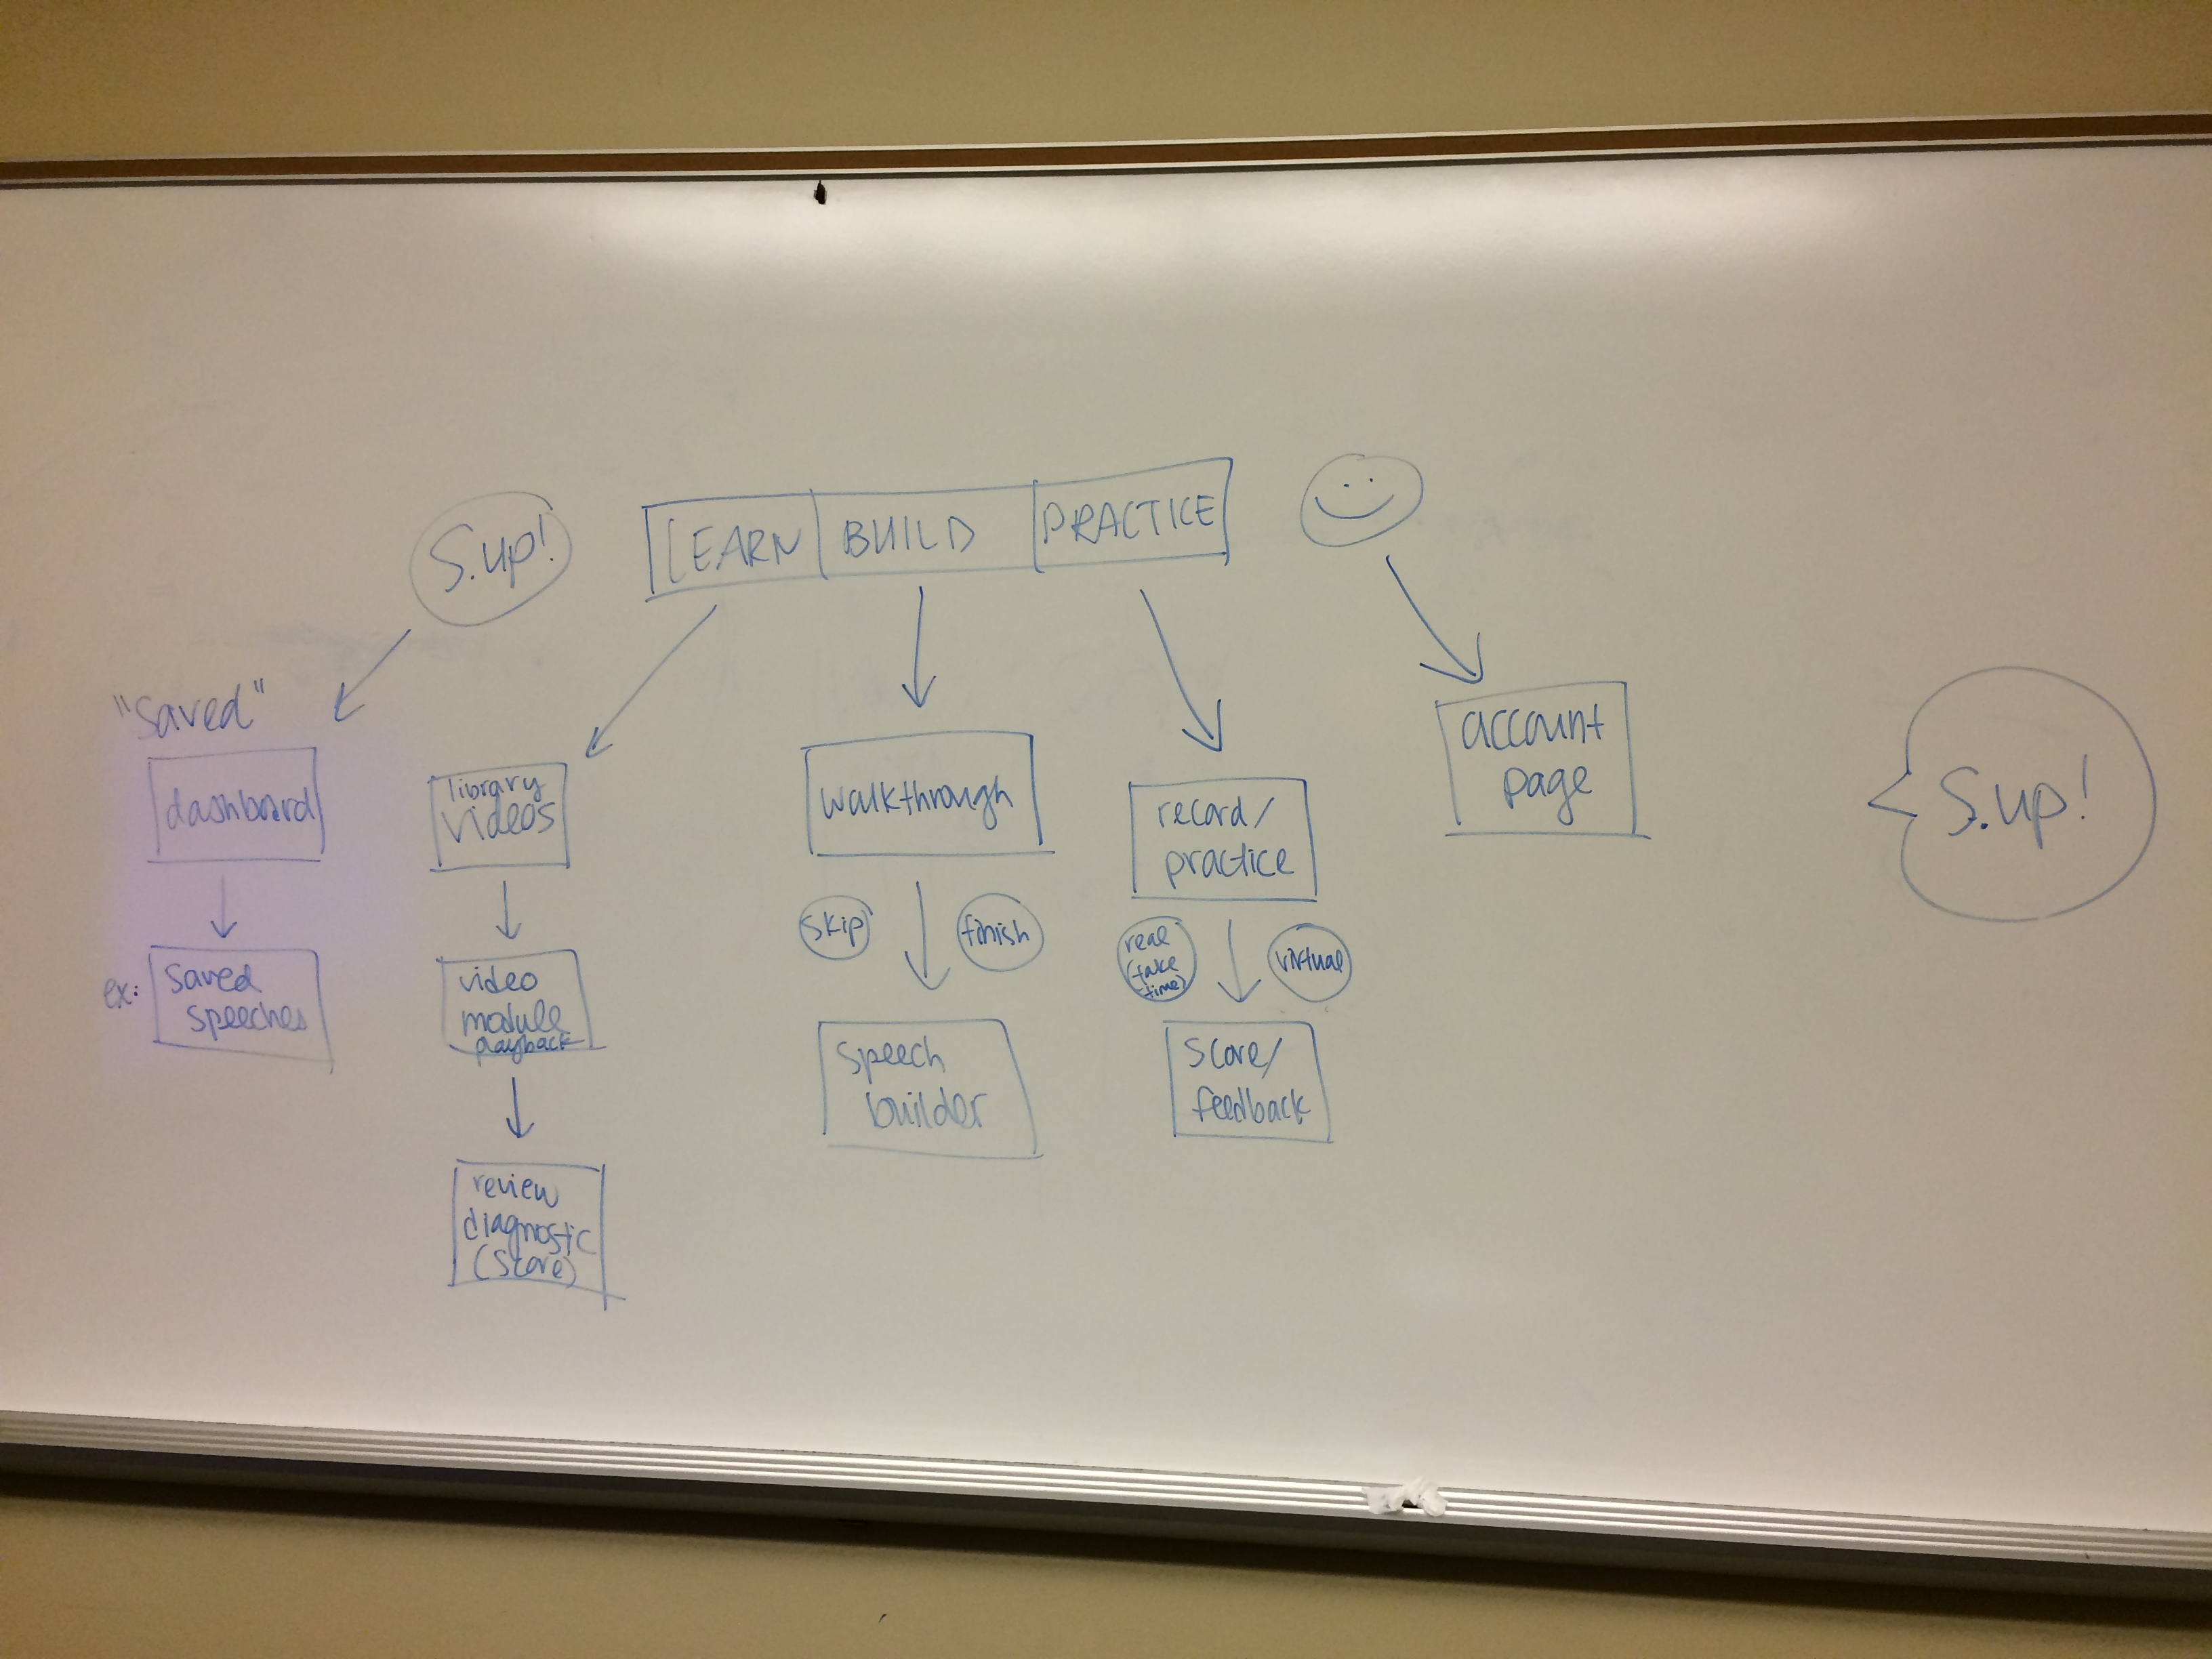 S.up!
LEARN BUILD PRACTICE
"saved"
dashboard
ex: saved
speeches
library
videos
video
module
playback
review
diagnostic
(score)
walkthrough
skip
finish
speech
builder
record/
practice
real
(take
time)
virtual
score/
feedback
account
page
S.up!